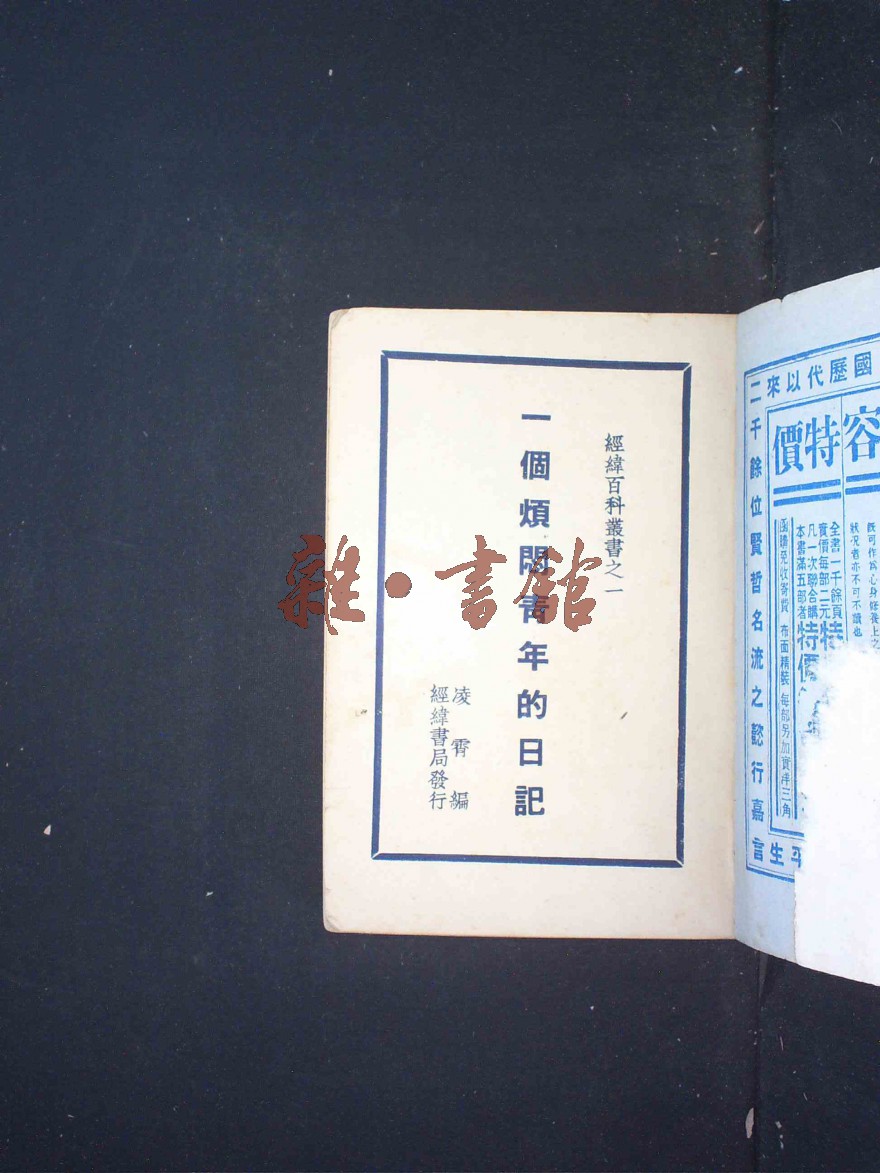 經緯百科叢書之一
一個煩悶青年的日記
凌霄編
經緯書局發行
雜·書館
國歷代以來
二千餘位賢哲名流之懿行嘉言
平生
容
特價
旣可作爲心身修養上之
狀況者亦不可不讀也
全書一千餘頁
實價每部二元特
凡一次聯合購
本書滿五部者特價
函購免收寄費 布面精裝 每部另加實洋三角